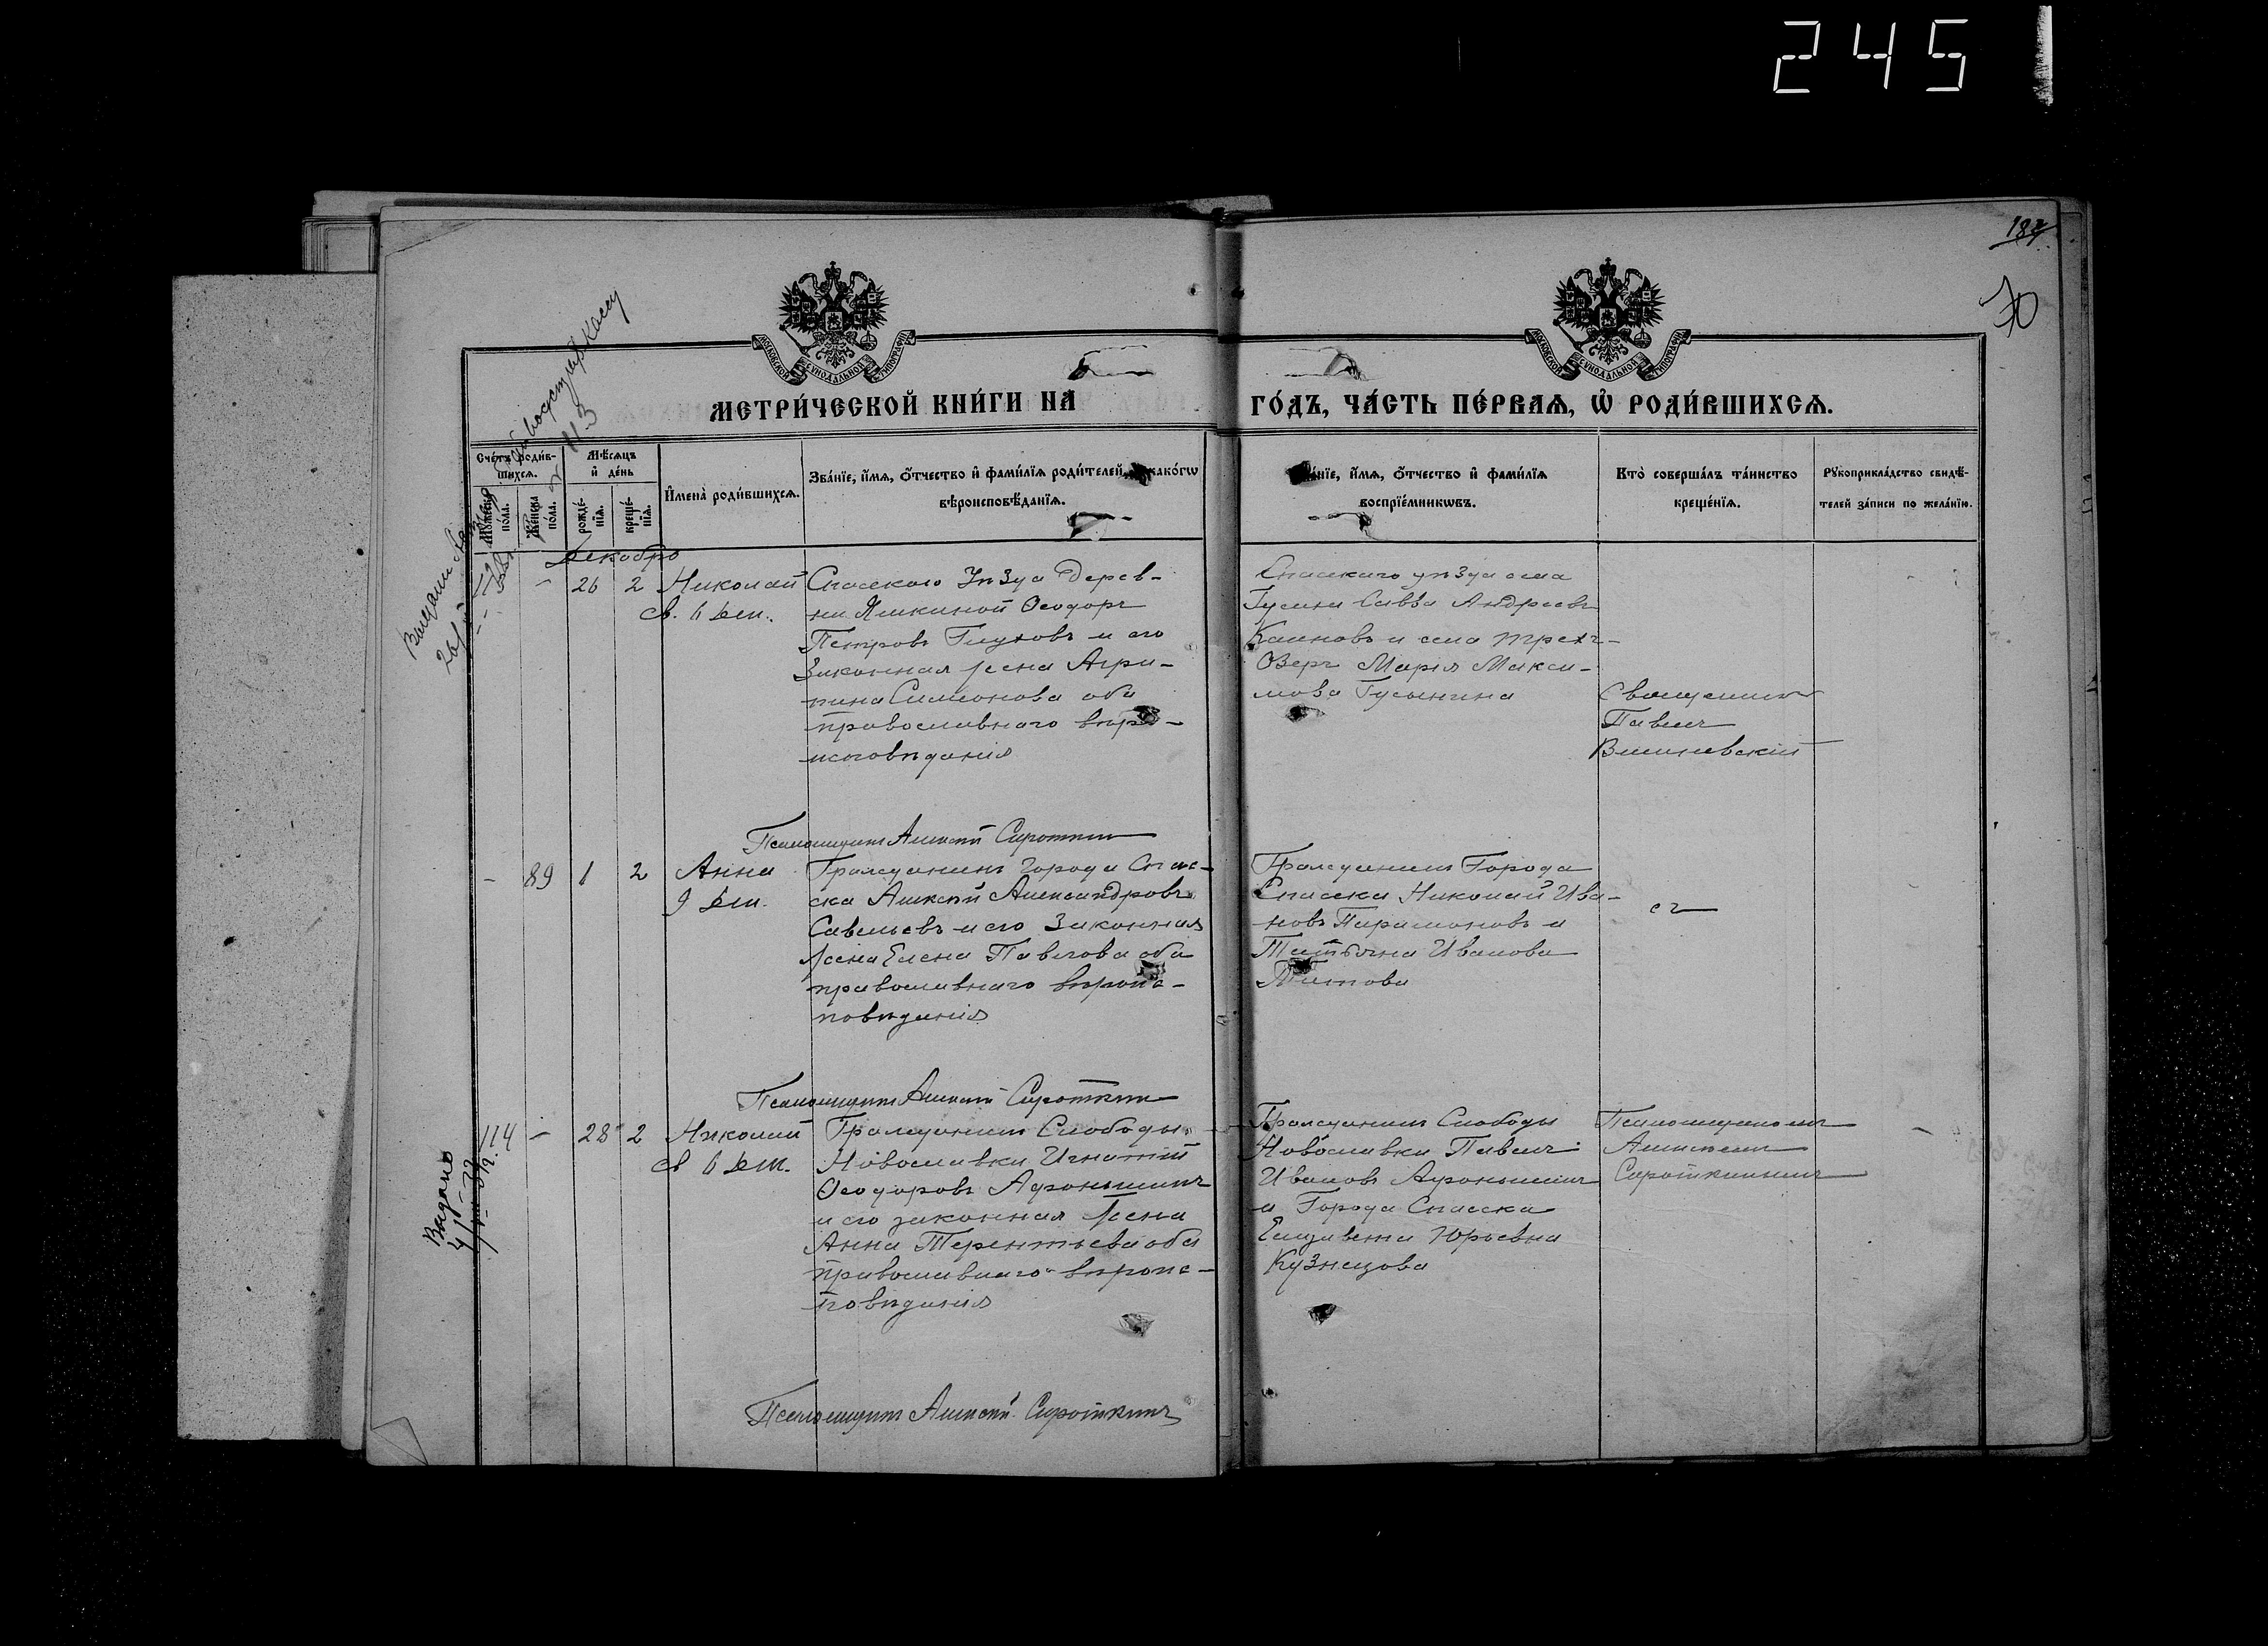 245
187
70
МОСКОВСКОЙ СѴНОДАЛЬНОЙ ТИПОГРАФІИ
МОСКОВСКОЙ СѴНОДАЛЬНОЙ ТИПОГРАФІИ
МЕТРИ́ЧЕСКОЙ КНИ́ГИ НА ГО́ДЪ, ЧА́СТЬ ПЕ́РВАѦ, Ѡ҆ РОДИ́ВШИХСѦ.
Сче́тъ роди́в-
шихсѧ.
Му́жеска
по́ла.
Же́нска
по́ла.
Мѣ́сѧцъ
и҆ де́нь
рожде́-
нїѧ.
креще́-
нїѧ.
И҆мена̀ роди́вшихсѧ.
Зва́нїе, и҆́мѧ, ѻ҆́тчество и҆ фами́лїѧ роди́телей, како́гѡ
вѣроисповѣ́данїѧ.
и҆́мѧ, ѻ҆́тчество и҆ фами́лїѧ
воспрїе́мникѡвъ.
Кто̀ соверша́лъ та́инство
креще́нїѧ.
Рꙋкоприкла́дство свидѣ́-
телей за́писи по жела́нїю.
Декабрь
113
- 26 2 Николай
св. 6 Дек.
Спасскаго Уѣзда Дерев-
ни Ямкиной Ѳеодоръ
Петровъ Глуховъ и его
Законная жена Агри-
пина Симионова оба
православнаго вѣро-
исповѣданія
Спасскаго уѣзда села
Гусина Савва Андреевъ
Каиновъ и села Трехъ-
Озеръ Марія Макси-
мова Гусынина
Священникъ
Павелъ
Вишневскій
Псаломщикъ Алексѣй Сироткинъ
- 89 1 2 Анна
9 Дек.
Гражданинъ Города Спас-
ска Алексѣй Александровъ
Савельевъ и его Законная
жена Елена Павлова оба
православнаго вѣроис-
повѣданія
Гражданинъ Города
Спасска Николай Ива-
новъ Парамоновъ и
Татьяна Иванова
Титова
Псаломщикъ Алексѣй Сироткинъ
114 - 28 2 Николай
св 6 Дек.
Гражданинъ Слободы
Новославки Игнатій
Ѳеодоровъ Афонышинъ
и его законная жена
Анна Терентьева оба
православнаго вѣроис-
повѣданія
Гражданинъ Слободы
Новославки Павелъ
Ивановъ Афонышинъ
и Города Спасска
Елизавета Юрьевна
Кузнецова
Псаломщикомъ
Алексѣемъ
Сироткинымъ
Выдано
Псаломщикъ Алексѣй Сироткинъ